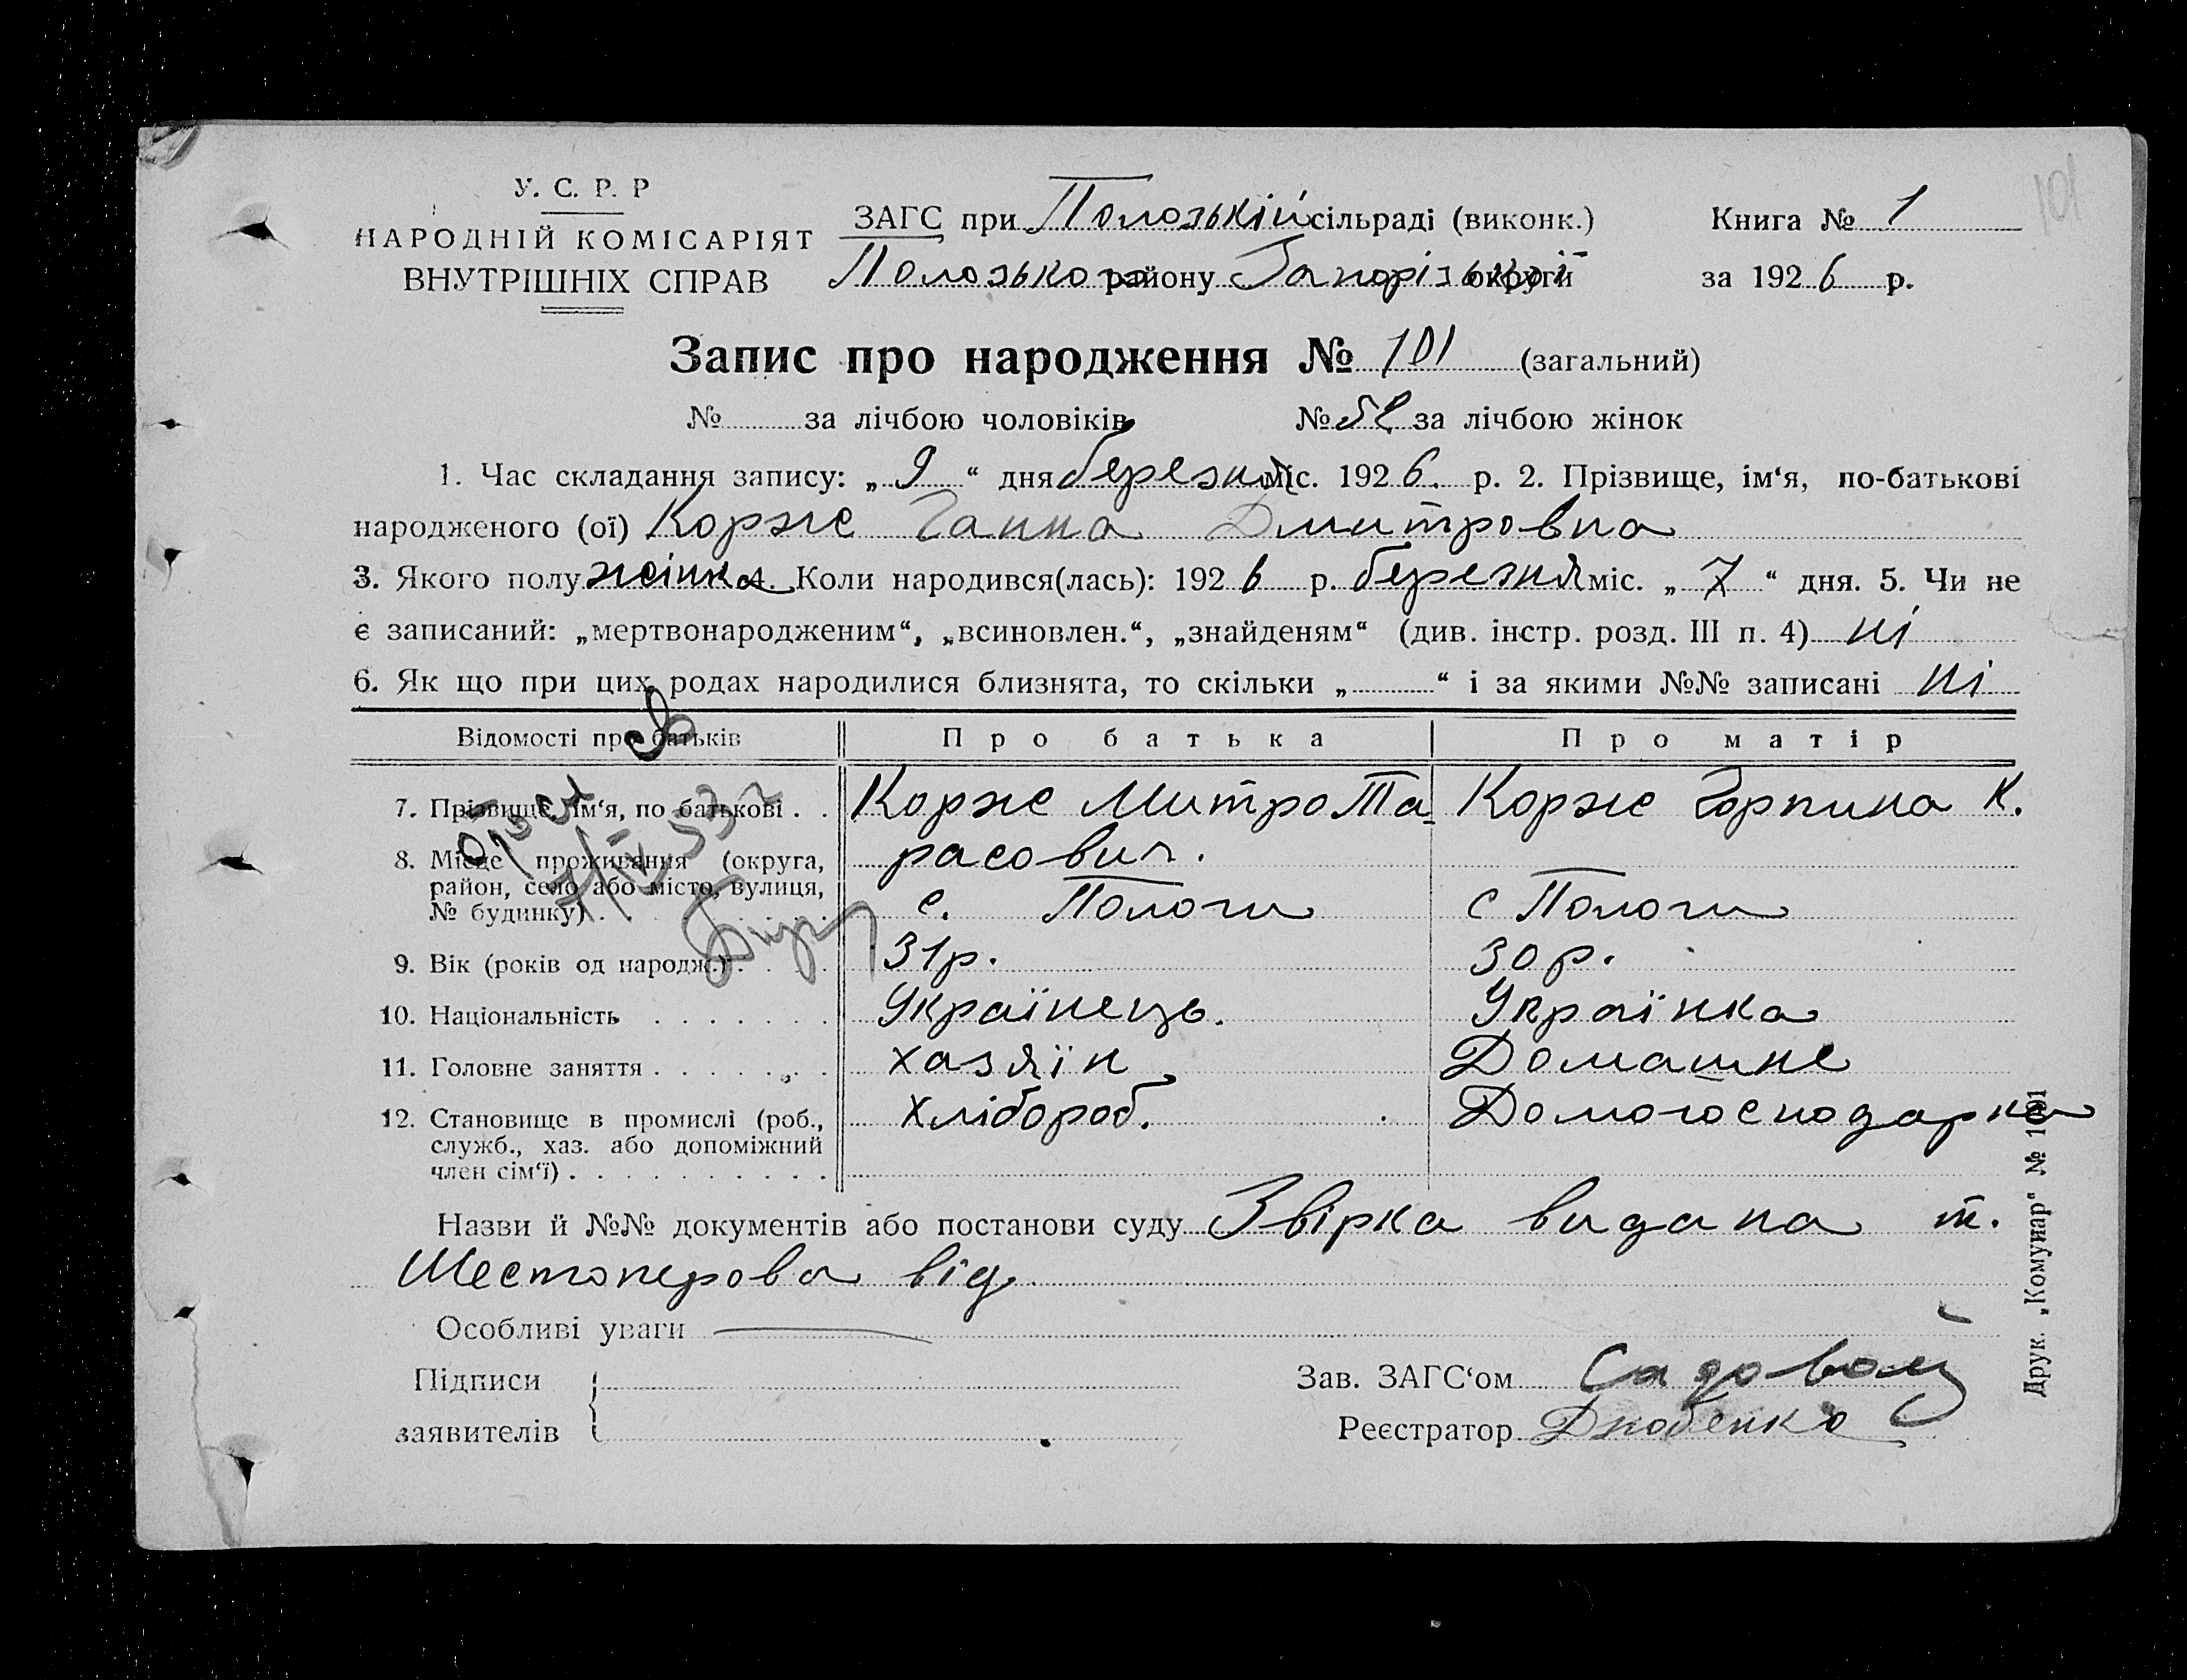 У. С. Р. Р
НАРОДНІЙ КОМІСАРІЯТ
ВНУТРІШНІХ СПРАВ
ЗАГС при Полозькій сільраді (виконк.)
Полозького району Запорізької округи
Книга № 1
за 1926 р.
101
Запис про народження № 101 (загальний)
№ за лічбою чоловіків № 52 за лічбою жінок
1. Час складання запису: „ 9 “ дня березня міс. 1926. р. 2. Прізвище, ім‘я, по-батькові
народженого (ої) Корже Ганна Дмитровна
3. Якого полу жінка 4. Коли народився(лась): 1926 р. березня міс. „ 7 “ дня. 5. Чи не
є записаний: „мертвонародженим“, „всиновлен.“, „знайденям“ (див. інстр. розд. III п. 4) ні
6. Як що при цих родах народилися близнята, то скільки „ “ і за якими №№ записані ні
Відомості про батьків Про батька Про матір
7. Прізвище, ім‘я, по батькові . . Корже Митро Та- Корже Горпина К.
расович.
8. Місце проживання (округа,
район, село або місто, вулиця,
№ будинку) . с. Пологи с Пологи
9. Вік (років од народж.) . 31 р. 30 р.
10. Національність Українець. Українка
11. Головне заняття хазяїн Домашне
12. Становище в промислі (роб.,
служб., хаз. або допоміжний
член сім‘ї) . хлібороб. Домогосподарка
Назви й №№ документів або постанови суду Звірка видана т.
Шестоперова від
Особливі уваги
Підписи
заявителів
Зав. ЗАГС‘ом Садовой
Реєстратор
Друк. „Комунар“ № 1091